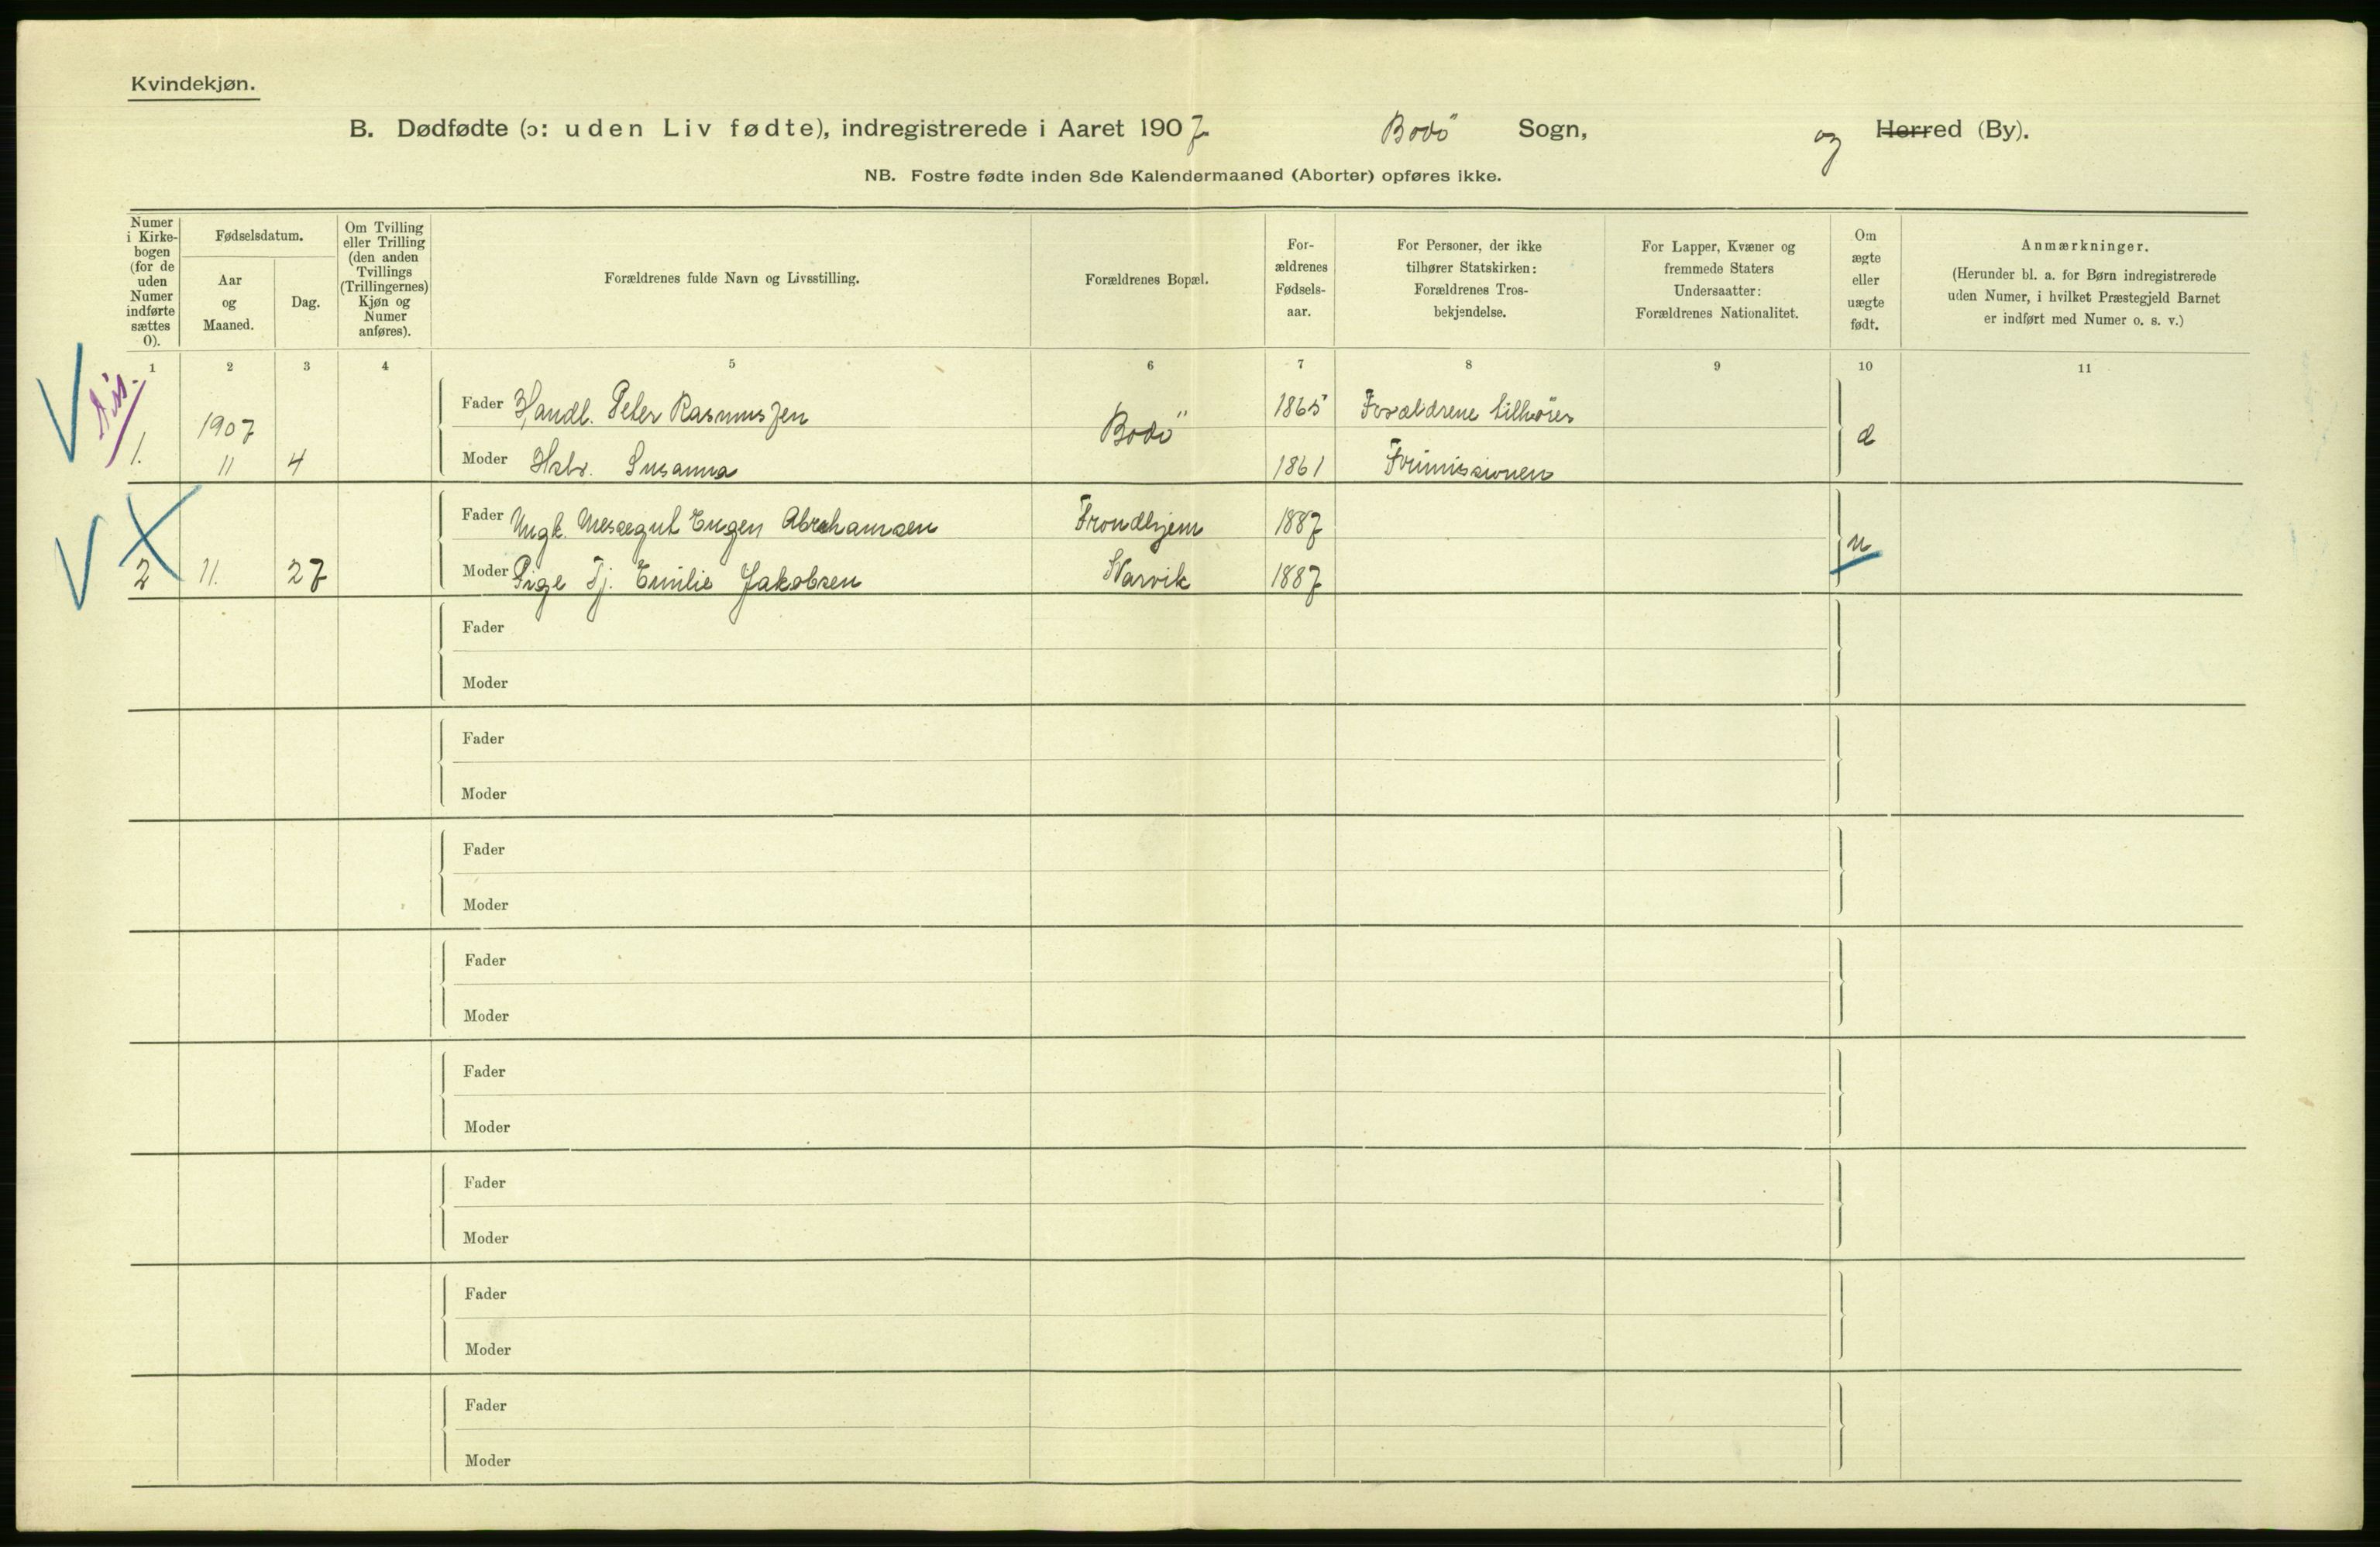 Kvindekjøn.
B. Dødfødte (ɔ: uden Liv fødte), indregistrerede i Aaret 1907 Bodö Sogn, og Herred (By).
NB. Fostre fødte inden 8de Kalendermaaned (Aborter) opføres ikke.
Numer i Kirke-bogen (for de uden Numer indførte sættes 0).
Fødselsdatum.
Aar og Maaned.
Dag.
Om Tvilling eller Trilling (den anden Tvillings (Trillingernes) Kjøn og Numer anføres).
Forældrenes fulde Navn og Livsstilling.
Forældrenes Bopæl.
For-ældrenes Fødsels-aar.
For Personer, der ikke tilhører Statskirken: Forældrenes Tros-bekjendelse.
For Lapper, Kvæner og fremmede Staters Undersaatter: Forældrenes Nationalitet.
Om ægte eller uægte født.
Anmærkninger.
(Herunder bl. a. for Børn indregistrerede uden Numer, i hvilket Præstegjeld Barnet er indført med Numer o. s. v.)
1 2 3 4 5 6 7 8 9 10 11
dis.
1907
Fader Handl. Peter Rasmussen Bodö 1865 Forældrene tilhörer
1. 11 4 Moder Hstr. Susanna 1861 Frimissionen
Fader Ungk. Messegut Eugen Abrahamsen Trondhjem 1887
2 11. 27 Moder Pige Tj. Emilie Jakobsen Narvik 1887 u
Fader
Moder
Fader
Moder
Fader
Moder
Fader
Moder
Fader
Moder
Fader
Moder
Fader
Moder
Fader
Moder